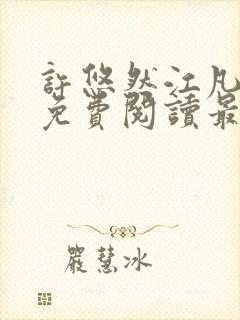 許悠然江凡
免費閱讀最
嚴慧冰